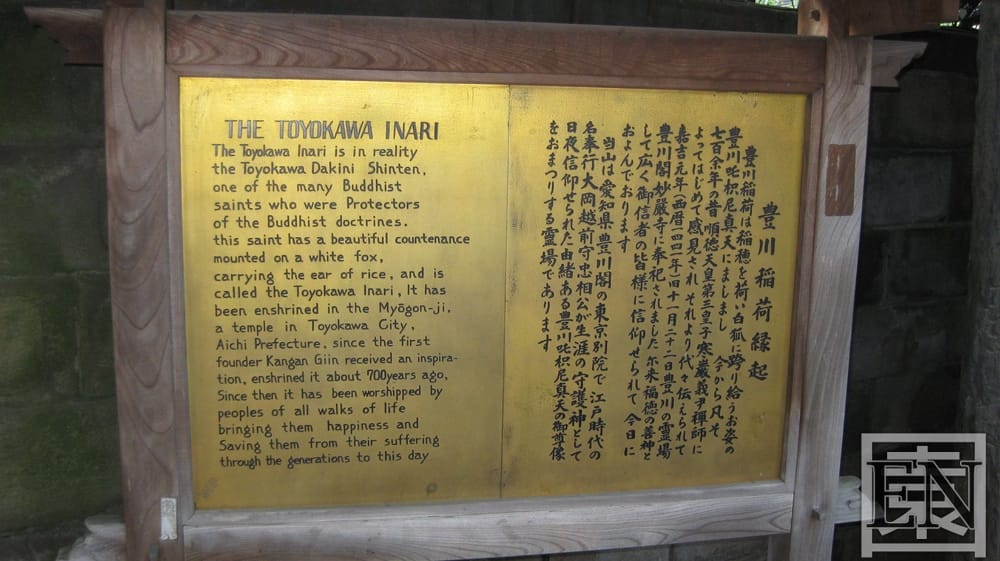 THE TOYOKAWA INARI
The Toyokawa Inari is in reality
the Toyokawa Dakini Shinten,
one of the many Buddhist
saints who were Protectors
of the Buddhist doctrines.
this saint has a beautiful countenance
mounted on a white fox,
carrying the ear of rice, and is
called the Toyokawa Inari, It has
been enshrined in the Myōgon-ji,
a temple in Toyokawa City,
Aichi Prefecture, since the first
founder Kangan Giin received an inspira-
tion, enshrined it about 700years ago,
Since then it has been worshipped by
peoples of all walks of life
bringing them happiness and
Saving them from their suffering
through the generations to this day
豊川稲荷縁起
豊川稲荷は稲穂を荷い白狐に跨り給うお姿の
豊川吒枳尼真天にまします 今から凡そ
七百余年の昔 順徳天皇第三皇子 寒巌義尹禅師に
よってはじめて感見され それより代々伝えられて
嘉吉元年(西暦一四四一年)十一月二十二日豊川の霊場
豊川閣妙厳寺に奉祀されました 尓来福徳の善神と
して広く御信者の皆様に信仰せられて 今日に
およんでおります
当山は愛知県豊川閣の東京別院で 江戸時代の
名奉行大岡越前守忠相公が生涯の守護神として
日夜信仰せられた由緒ある豊川吒枳尼真天の御尊像
をおまつりする霊場であります
EN